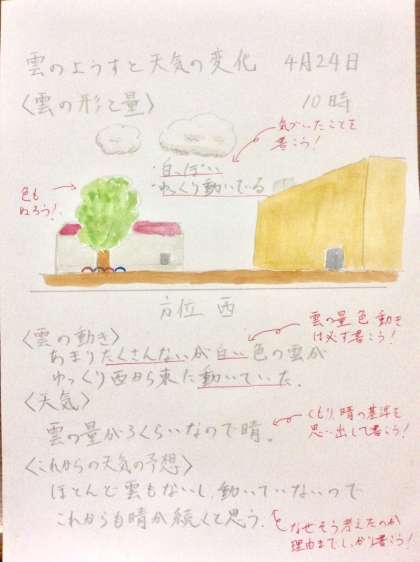 雲のようすと天気の変化 4月24日
〈雲の形と量〉 10時
気づいたことを
書こう!
・白っぽい
・ゆっくり動いている
色も
ぬろう!
方位 西
〈雲の動き〉
雲の量 色 動き
は必ず書こう!
あまりたくさんないが白い色の雲が
ゆっくり西から東に動いていた。
〈天気〉
くもり、晴の基準を
思い出して書こう!
雲の量が3くらいなので晴。
〈これからの天気の予想〉
ほとんど雲もないし、動いていないので
これからも晴が続くと思う。
なぜそう考えたのか
理由まで、しっかり書こう!